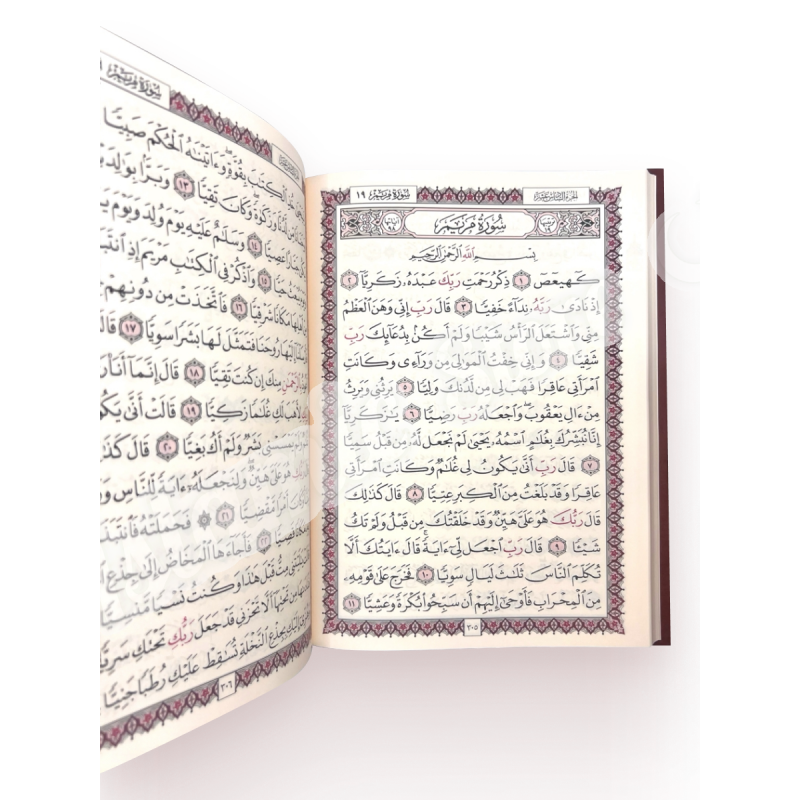 الجزء السادس عشر سورة مريم ١٩
سُورَةُ مَرْيَمَ
بِسْمِ اللَّهِ الرَّحْمَٰنِ الرَّحِيمِ
كٓهيعٓصٓ ١ ذِكْرُ رَحْمَتِ رَبِّكَ عَبْدَهُۥ زَكَرِيَّآ ٢
إِذْ نَادَىٰ رَبَّهُۥ نِدَآءً خَفِيًّا ٣ قَالَ رَبِّ إِنِّى وَهَنَ ٱلْعَظْمُ
مِنِّى وَٱشْتَعَلَ ٱلرَّأْسُ شَيْبًا وَلَمْ أَكُنۢ بِدُعَآئِكَ رَبِّ
شَقِيًّا ٤ وَإِنِّى خِفْتُ ٱلْمَوَٰلِىَ مِن وَرَآءِى وَكَانَتِ
ٱمْرَأَتِى عَاقِرًا فَهَبْ لِى مِن لَّدُنكَ وَلِيًّا ٥ يَرِثُنِى وَيَرِثُ
مِنْ ءَالِ يَعْقُوبَ ۖ وَٱجْعَلْهُ رَبِّ رَضِيًّا ٦ يَٰزَكَرِيَّآ
إِنَّا نُبَشِّرُكَ بِغُلَٰمٍ ٱسْمُهُۥ يَحْيَىٰ لَمْ نَجْعَل لَّهُۥ مِن قَبْلُ سَمِيًّا
٧ قَالَ رَبِّ أَنَّىٰ يَكُونُ لِى غُلَٰمٌ وَكَانَتِ ٱمْرَأَتِى
عَاقِرًا وَقَدْ بَلَغْتُ مِنَ ٱلْكِبَرِ عِتِيًّا ٨ قَالَ كَذَٰلِكَ
قَالَ رَبُّكَ هُوَ عَلَىَّ هَيِّنٌ وَقَدْ خَلَقْتُكَ مِن قَبْلُ وَلَمْ تَكُ
شَيْـًٔا ٩ قَالَ رَبِّ ٱجْعَل لِّىٓ ءَايَةً ۚ قَالَ ءَايَتُكَ أَلَّا
تُكَلِّمَ ٱلنَّاسَ ثَلَٰثَ لَيَالٍ سَوِيًّا ١٠ فَخَرَجَ عَلَىٰ قَوْمِهِۦ
مِنَ ٱلْمِحْرَابِ فَأَوْحَىٰٓ إِلَيْهِمْ أَن سَبِّحُوا۟ بُكْرَةً وَعَشِيًّا ١١
٣٠٥
سورة مريم
ٱلْكِتَٰبَ بِقُوَّةٍ ۖ وَءَاتَيْنَٰهُ ٱلْحُكْمَ صَبِيًّا
وَزَكَوٰةً ۖ وَكَانَ تَقِيًّا ١٣ وَبَرًّۢا
عَصِيًّا ١٤ وَسَلَٰمٌ عَلَيْهِ يَوْمَ وُلِدَ وَيَوْمَ
حَيًّا ١٥ وَٱذْكُرْ فِى ٱلْكِتَٰبِ مَرْيَمَ إِذِ
مَكَانًا شَرْقِيًّا ١٦ فَٱتَّخَذَتْ مِن دُونِهِمْ
إِلَيْهَا رُوحَنَا فَتَمَثَّلَ لَهَا بَشَرًا سَوِيًّا ١٧
مِنكَ إِن كُنتَ تَقِيًّا ١٨ قَالَ إِنَّمَآ أَنَا۠
لِأَهَبَ لَكِ غُلَٰمًا زَكِيًّا ١٩ قَالَتْ أَنَّىٰ
بَشَرٌ وَلَمْ أَكُ بَغِيًّا ٢٠ قَالَ
هُوَ عَلَىَّ هَيِّنٌ ۖ وَلِنَجْعَلَهُۥٓ ءَايَةً لِّلنَّاسِ
أَمْرًا مَّقْضِيًّا ٢١ ۞ فَحَمَلَتْهُ
قَصِيًّا ٢٢ فَأَجَآءَهَا ٱلْمَخَاضُ إِلَىٰ جِذْعِ
مِتُّ قَبْلَ هَٰذَا وَكُنتُ نَسْيًا مَّنسِيًّا
مِن تَحْتِهَآ أَلَّا تَحْزَنِى قَدْ جَعَلَ رَبُّكِ تَحْتَكِ
إِلَيْكِ بِجِذْعِ ٱلنَّخْلَةِ تُسَٰقِطْ عَلَيْكِ رُطَبًا جَنِيًّا
٣٠٦